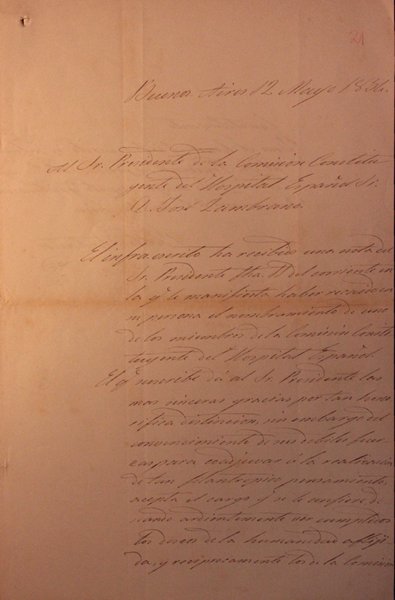 21
Buenos Aires 12 Mayo 185
Al Sr. Presidente de la Comision Constitu
yente del Hospital Español Sr.
D. José Zambrano
El infrascrito ha recibido una nota del
Sr. Presidente fha. 11 del corriente en
la qe. le manifiesta haber recaido en
su persona el nombramiento de uno
de los miembros de la Comision Consti
tuyente del Hospital Español.
El qe. suscribe dá al Sr. Presidente las
mas sinceras gracias por tan hono
rifica distincion, sin embargo del
convencimiento de sus debiles fuer
zas para coadjuvar á la realizacion
de tan filantropico pensamiento,
acepta el cargo qe. se le confiere de
seando ardientemente ver cumplidos
los deseos de la humanidad afliji
da, y reciprocamente los de la Comision